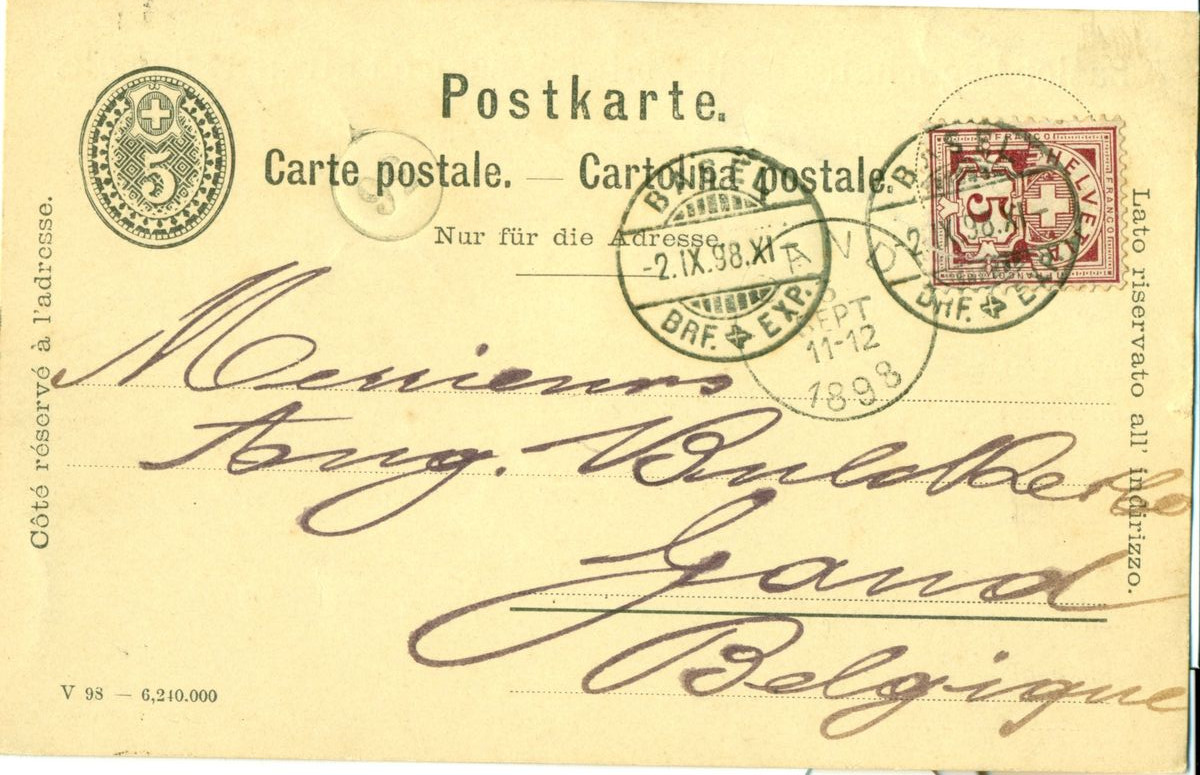 Postkarte.
Carte postale. — Cartolina postale.
Nur für die Adresse.
5
Côté réservé à l'adresse.
Lato riservato all' indirizzo.
BASEL
-2.IX.98.XI-
BRF. EXP.
BASEL
2.IX.98.XI-
BRF. EXP.
FRANCO
HELVETIA
FRANCO
5
SEPT
11-12
1898
Messieurs
Aug.
Gand
Belgique
V 98 — 6,240.000